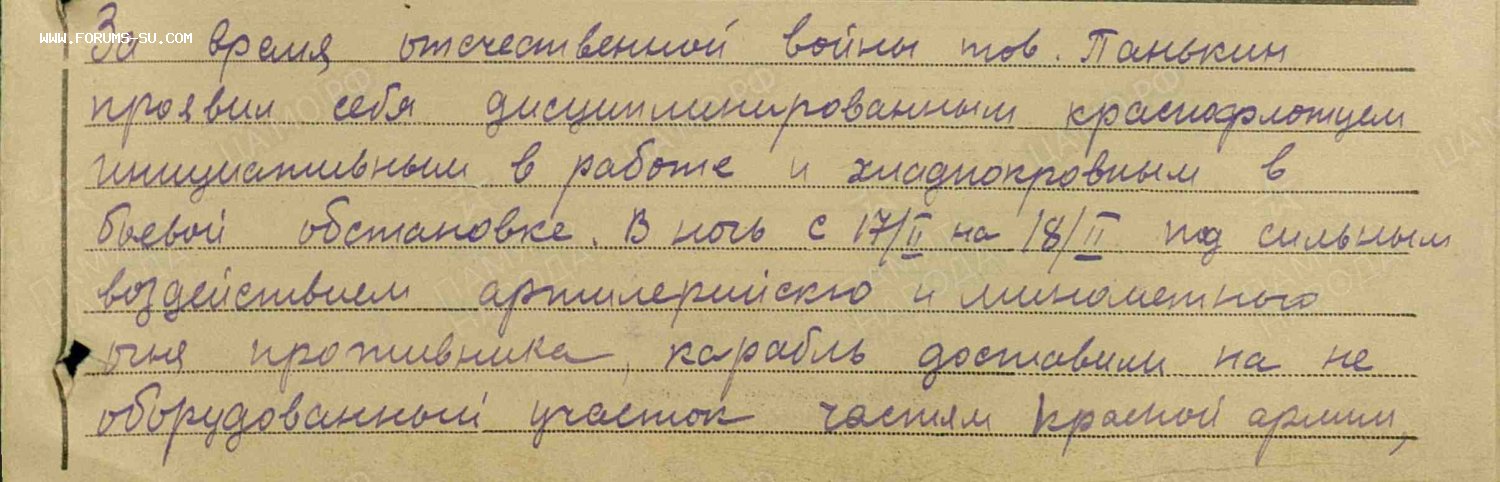 WWW.FORUMS-SU.COM
За время отечественной войны тов. Панькин
проявил себя дисциплинированным краснофлотцем
инициативным в работе и хладнокровным в
боевой обстановке. В ночь с 17/II на 18/II под сильным
воздействием артилерийского и минометного
огня противника, карабль доставили на не
оборудованный участок частям Красной армии,